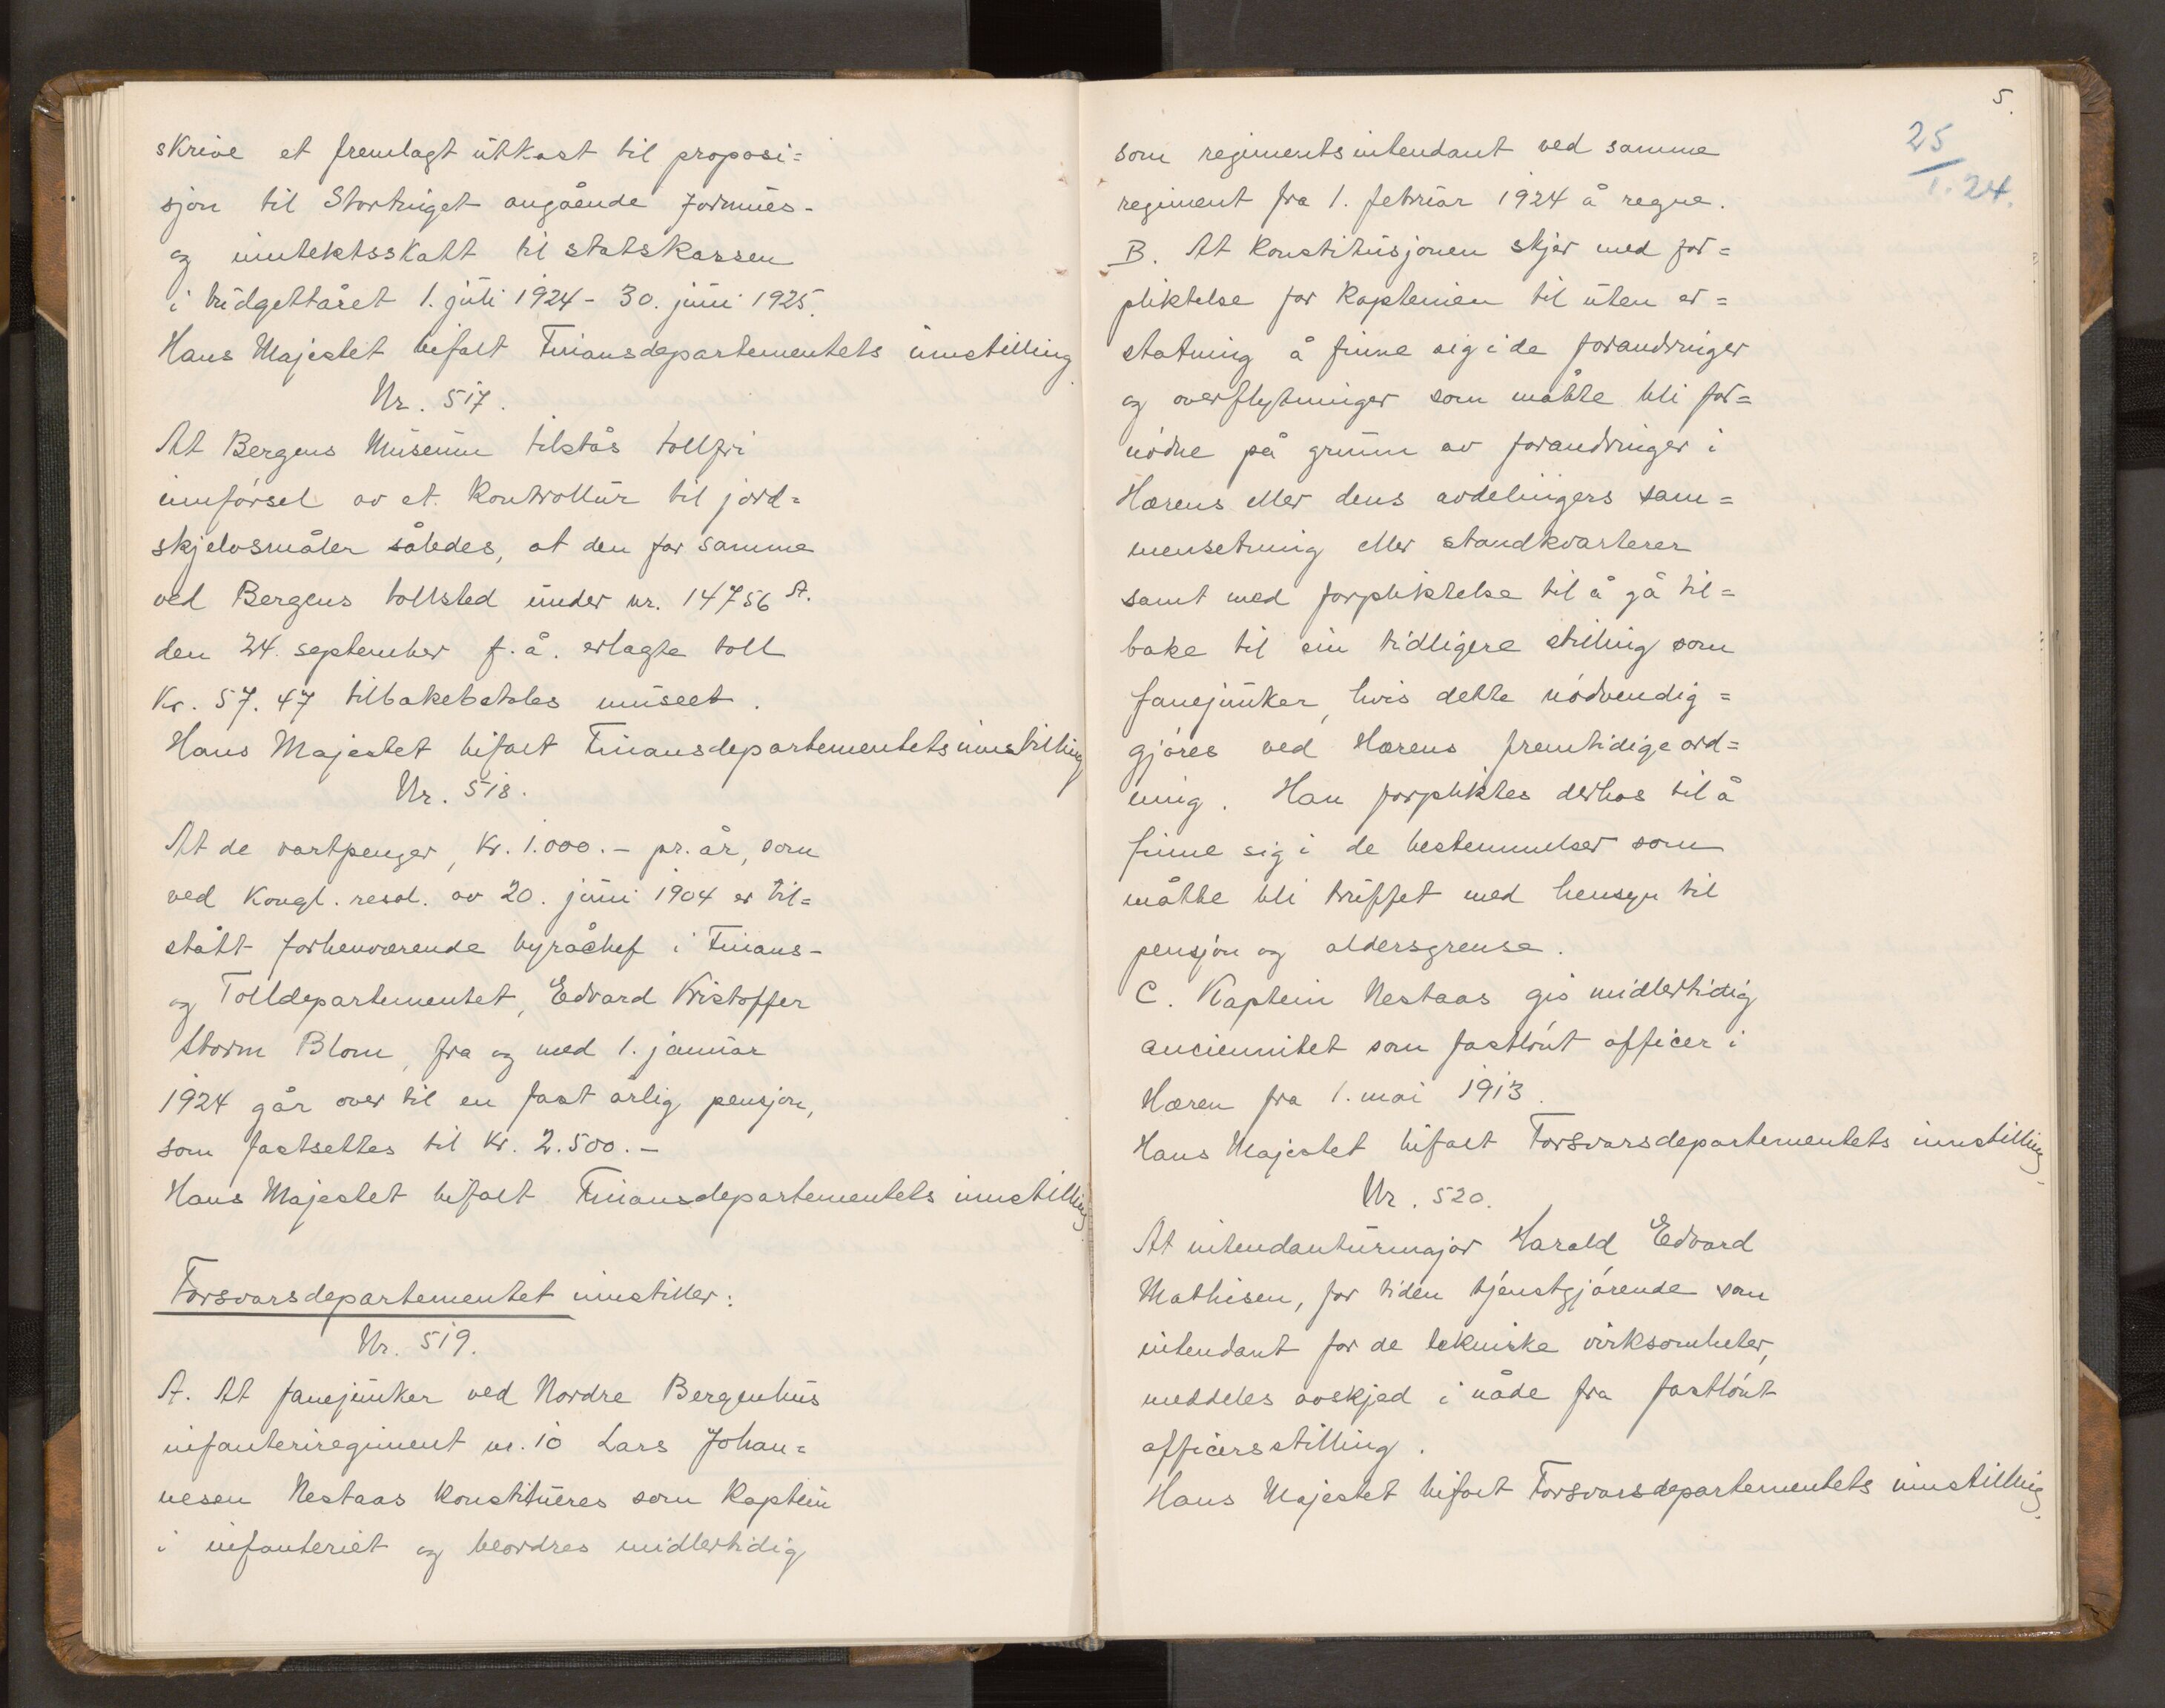 skrive et fremlagt utkast til proposi=
sjon til Stortinget angående formues-
og inntektsskatt til statskassen
i budgettåret 1. juli 1924 - 30. juni 1925.
Hans Majestet bifalt Finansdepartementets innstilling
Nr. 517.
At Bergens Museum tilstås tollfri
innførsel av et kontrollur til jord=
skjelvsmåler således, at den for samme
ved Bergens tollsted under nr. 14756 A.
den 24. september f. å. erlagte toll
Kr. 57.47 tilbakebetales museet.
Hans Majestet bifalt Finansdepartementets innstilling
Nr. 518.
At de vartpenger, Kr. 1.000.- pr. år, som
ved Kongl. resol. av 20. juni 1904 er til=
stått forhenværende byråchef i Finans-
og Tolldepartementet, Edvard Kristoffer
Storm Blom, fra og med 1. januar
1924 går over til en fast årlig pensjon,
som fastsettes til Kr. 2.500.-
Hans Majestet bifalt Finansdepartementets innstilling
Forsvarsdepartementet innstiller:
Nr. 519.
A. At fanejunker ved Nordre Bergenhus
infanteriregiment nr. 10 Lars Johan=
nesen Nestaas konstitueres som kaptein
i infanteriet og beordres midlertidig
5.
25/1. 24.
som regimentsintendant ved samme
regiment fra 1. februar 1924 å regne.
B. At konstitusjonen skjer med for=
pliktelse for kapteinen til uten er=
statning å finne sig i de forandringer
og overflytninger som måtte bli for=
nødne på grunn av forandringer i
Hærens eller dens avdelingers sam=
mensetning eller standkvarterer
samt med forpliktelse til å gå til=
bake til sin tidligere stilling som
fanejunker, hvis dette nødvendig=
gjøres ved Hærens fremtidige ord=
ning. Han forpliktes derhos til å
finne sig i de bestemmelser som
måtte bli truffet med hensyn til
pensjon og aldersgrense.
C. Kaptein Nestaas gis midlertidig
anciennitet som fastlønt officer i
Hæren fra 1. mai 1913.
Hans Majestet bifalt Forsvarsdepartementets innstilling.
Nr. 520.
At intendanturmajor Harald Edvard
Mathisen, for tiden tjenstgjørende som
intendant for de tekniske virksomheter,
meddeles avskjed i nåde fra fastlønt
officersstilling.
Hans Majestet bifalt Forsvarsdepartementets innstilling.